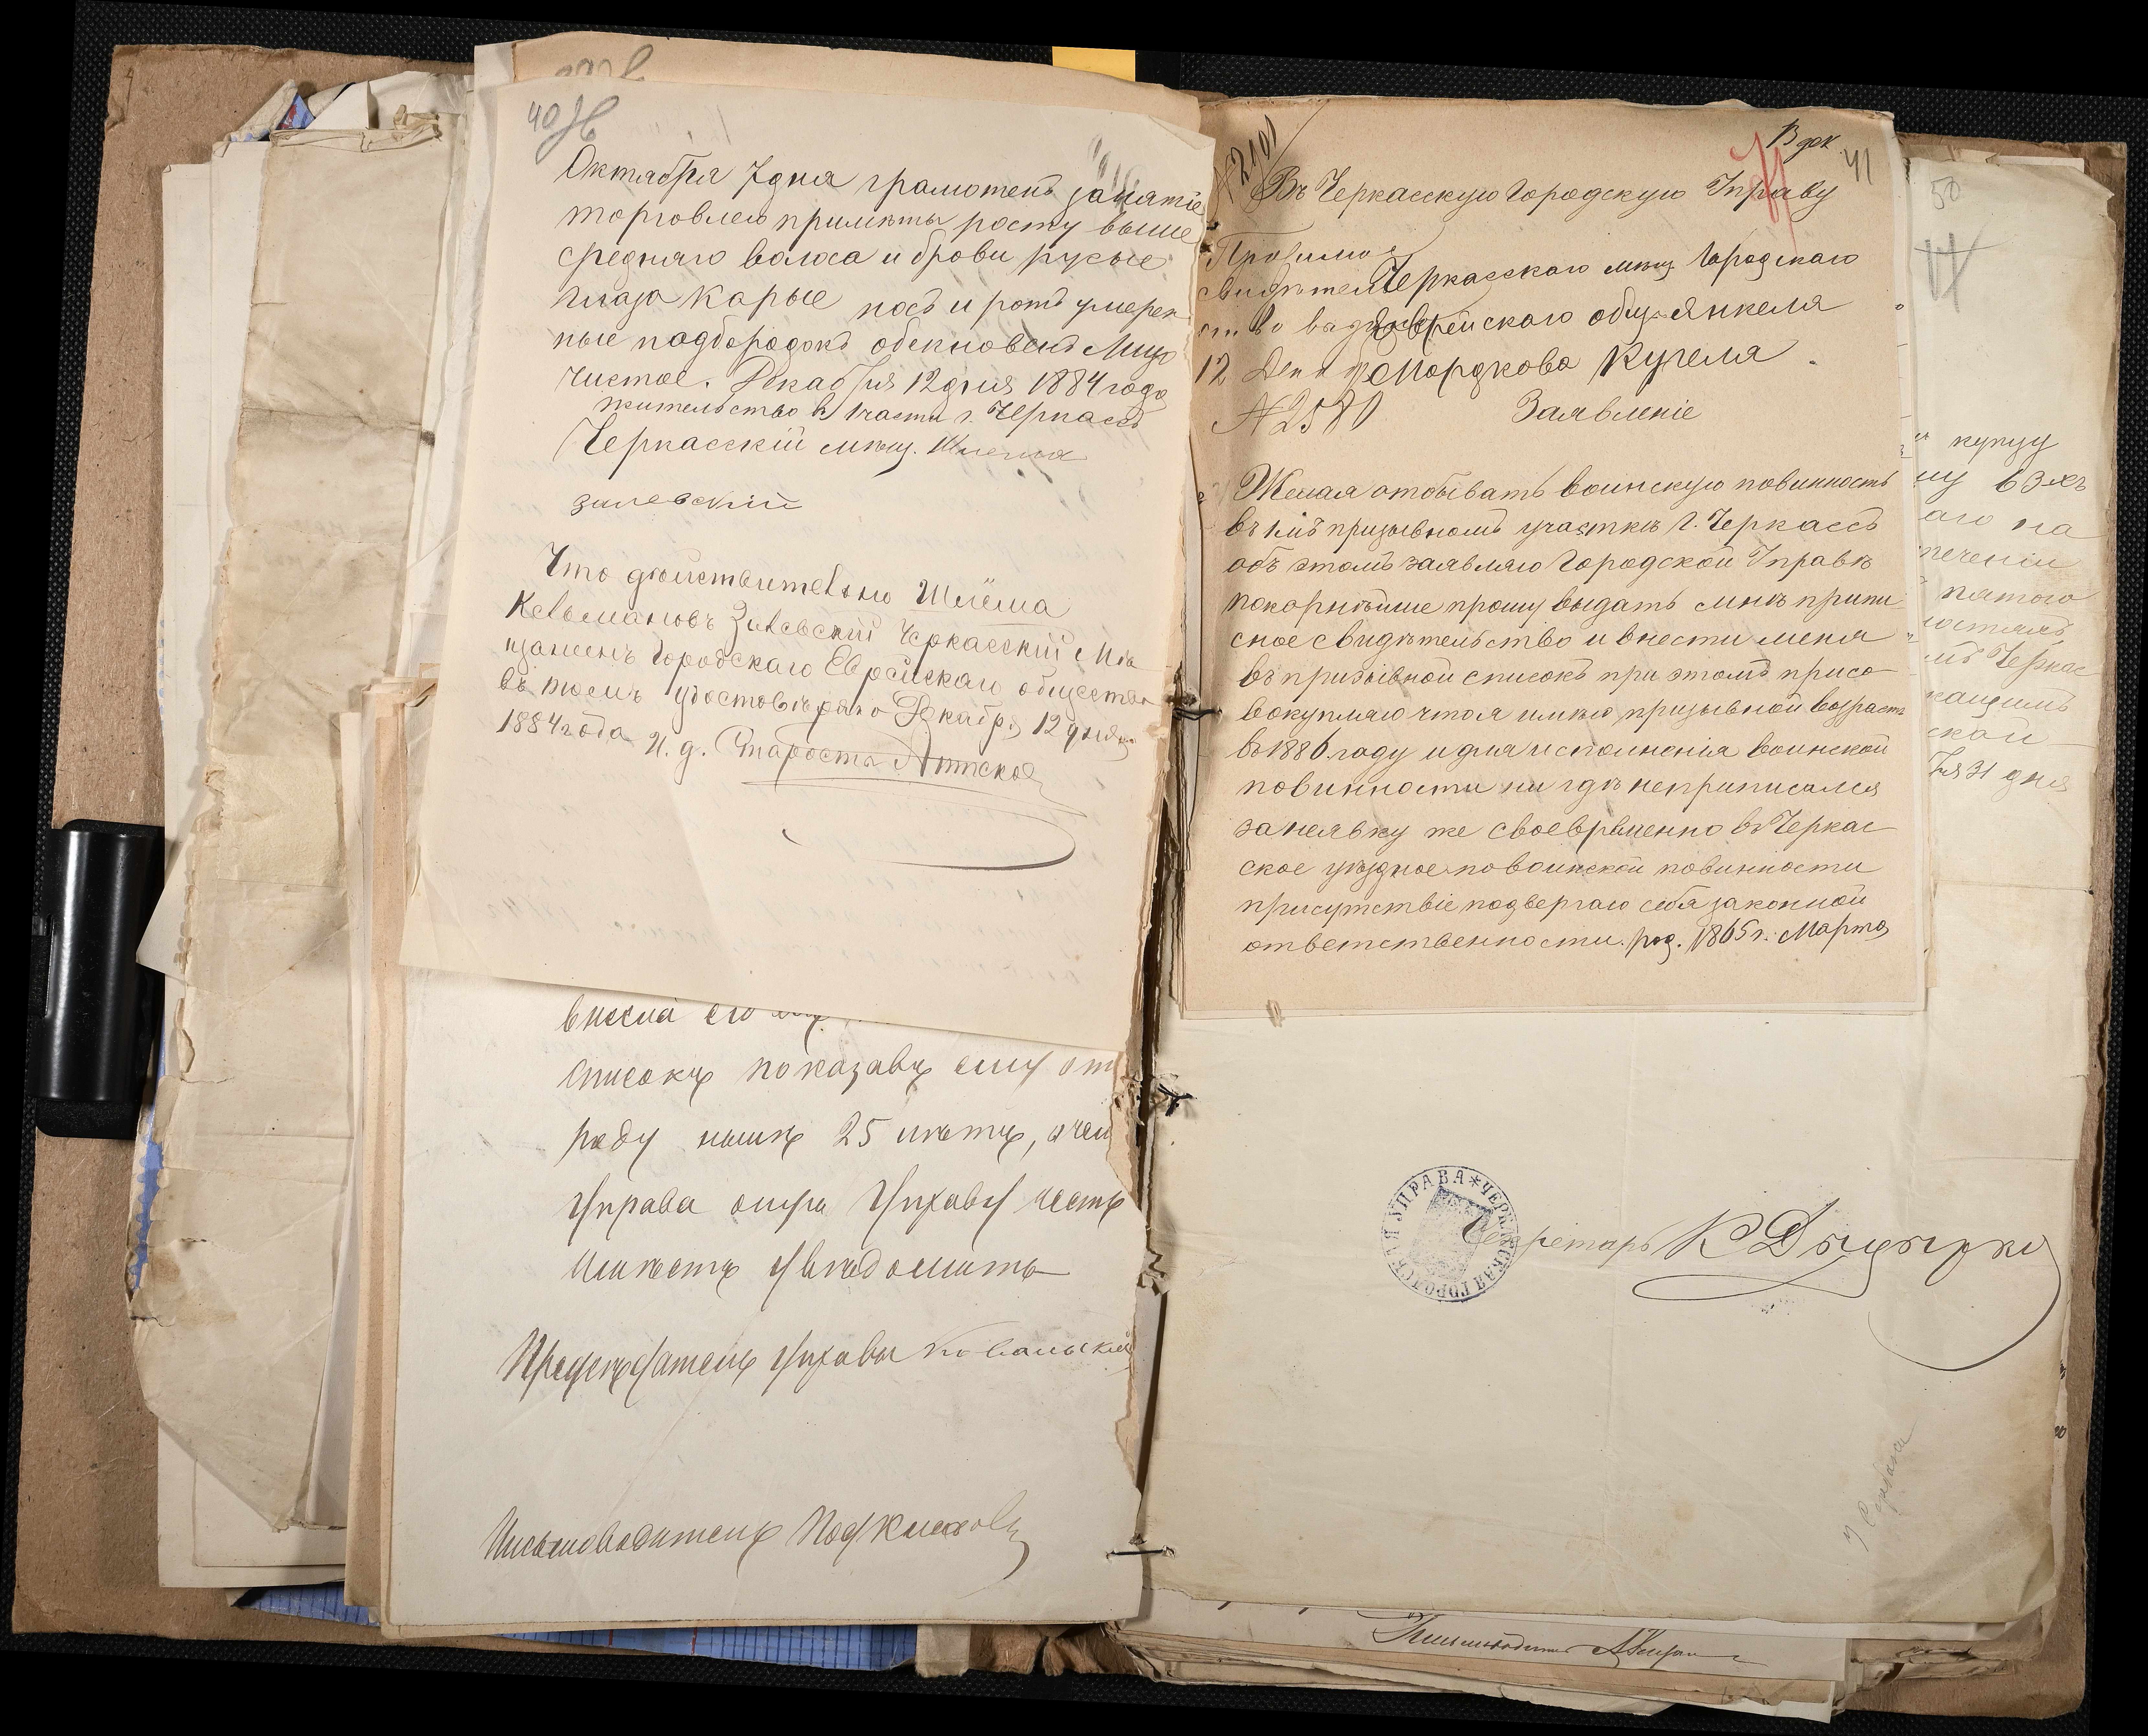 40
Октября 7 дня грамотенъ занятіе
торговлею примѣты росту выше
средняго волоса и брови русые
глаза карые носъ и ротъ умерен
ные подбородокъ обекновенъ Лицо
чистое. Декабря 12 дня 1884 года
жительство въ 1 части г. Черкассъ
Черкасскій мѣщ. Шлема
Зилевскій
Что дѣйствительно Шлёма
Кельмановъ Зилевскій Черкасскій Мѣ
щанинъ Городскаго Еврейскаго общества
въ томъ удостовѣряю Декабря 12 дня
1884 года И. д. Старосты
внесла его
списокъ показавъ ему от
роду нынѣ 25 лѣтъ, о чем
Управа оную Управу честь
имѣетъ увѣдомить
Предсѣдатель Управы Ковальскій
Письмоводитель
41
Въ Черкасскую Городскую Управу
Черкасскаго мѣщ. Городскаго
Еврейскаго общ. Янкеля
Мордкова Кугеля
12 Дек
№ 2580
Заявленіе
Желая отбывать воинскую повинность
въ 1мъ призывномъ участкѣ г. Черкассъ
объ этомъ заявляю Городской Управѣ
покорнѣйше прошу выдать мнѣ припи
сное свидѣтельство и внести меня
въ призывной списокъ при этомъ присо
вокупляю что я имѣю призывной возрастъ
въ 1886 году и для исполненія воинской
повинности ни гдѣ неприписался
за неявку же своевременно въ Черкас
ское уѣздное по воинской повинности
присутствіе подвергаю себя законной
ответственности. род. 1865 г. Марта
ЧЕРКАССКАЯ ГОРОДСКАЯ УПРАВА
Секретарь
50
купцу
аго на
течении
пятого
Черкас
ской
31 дня